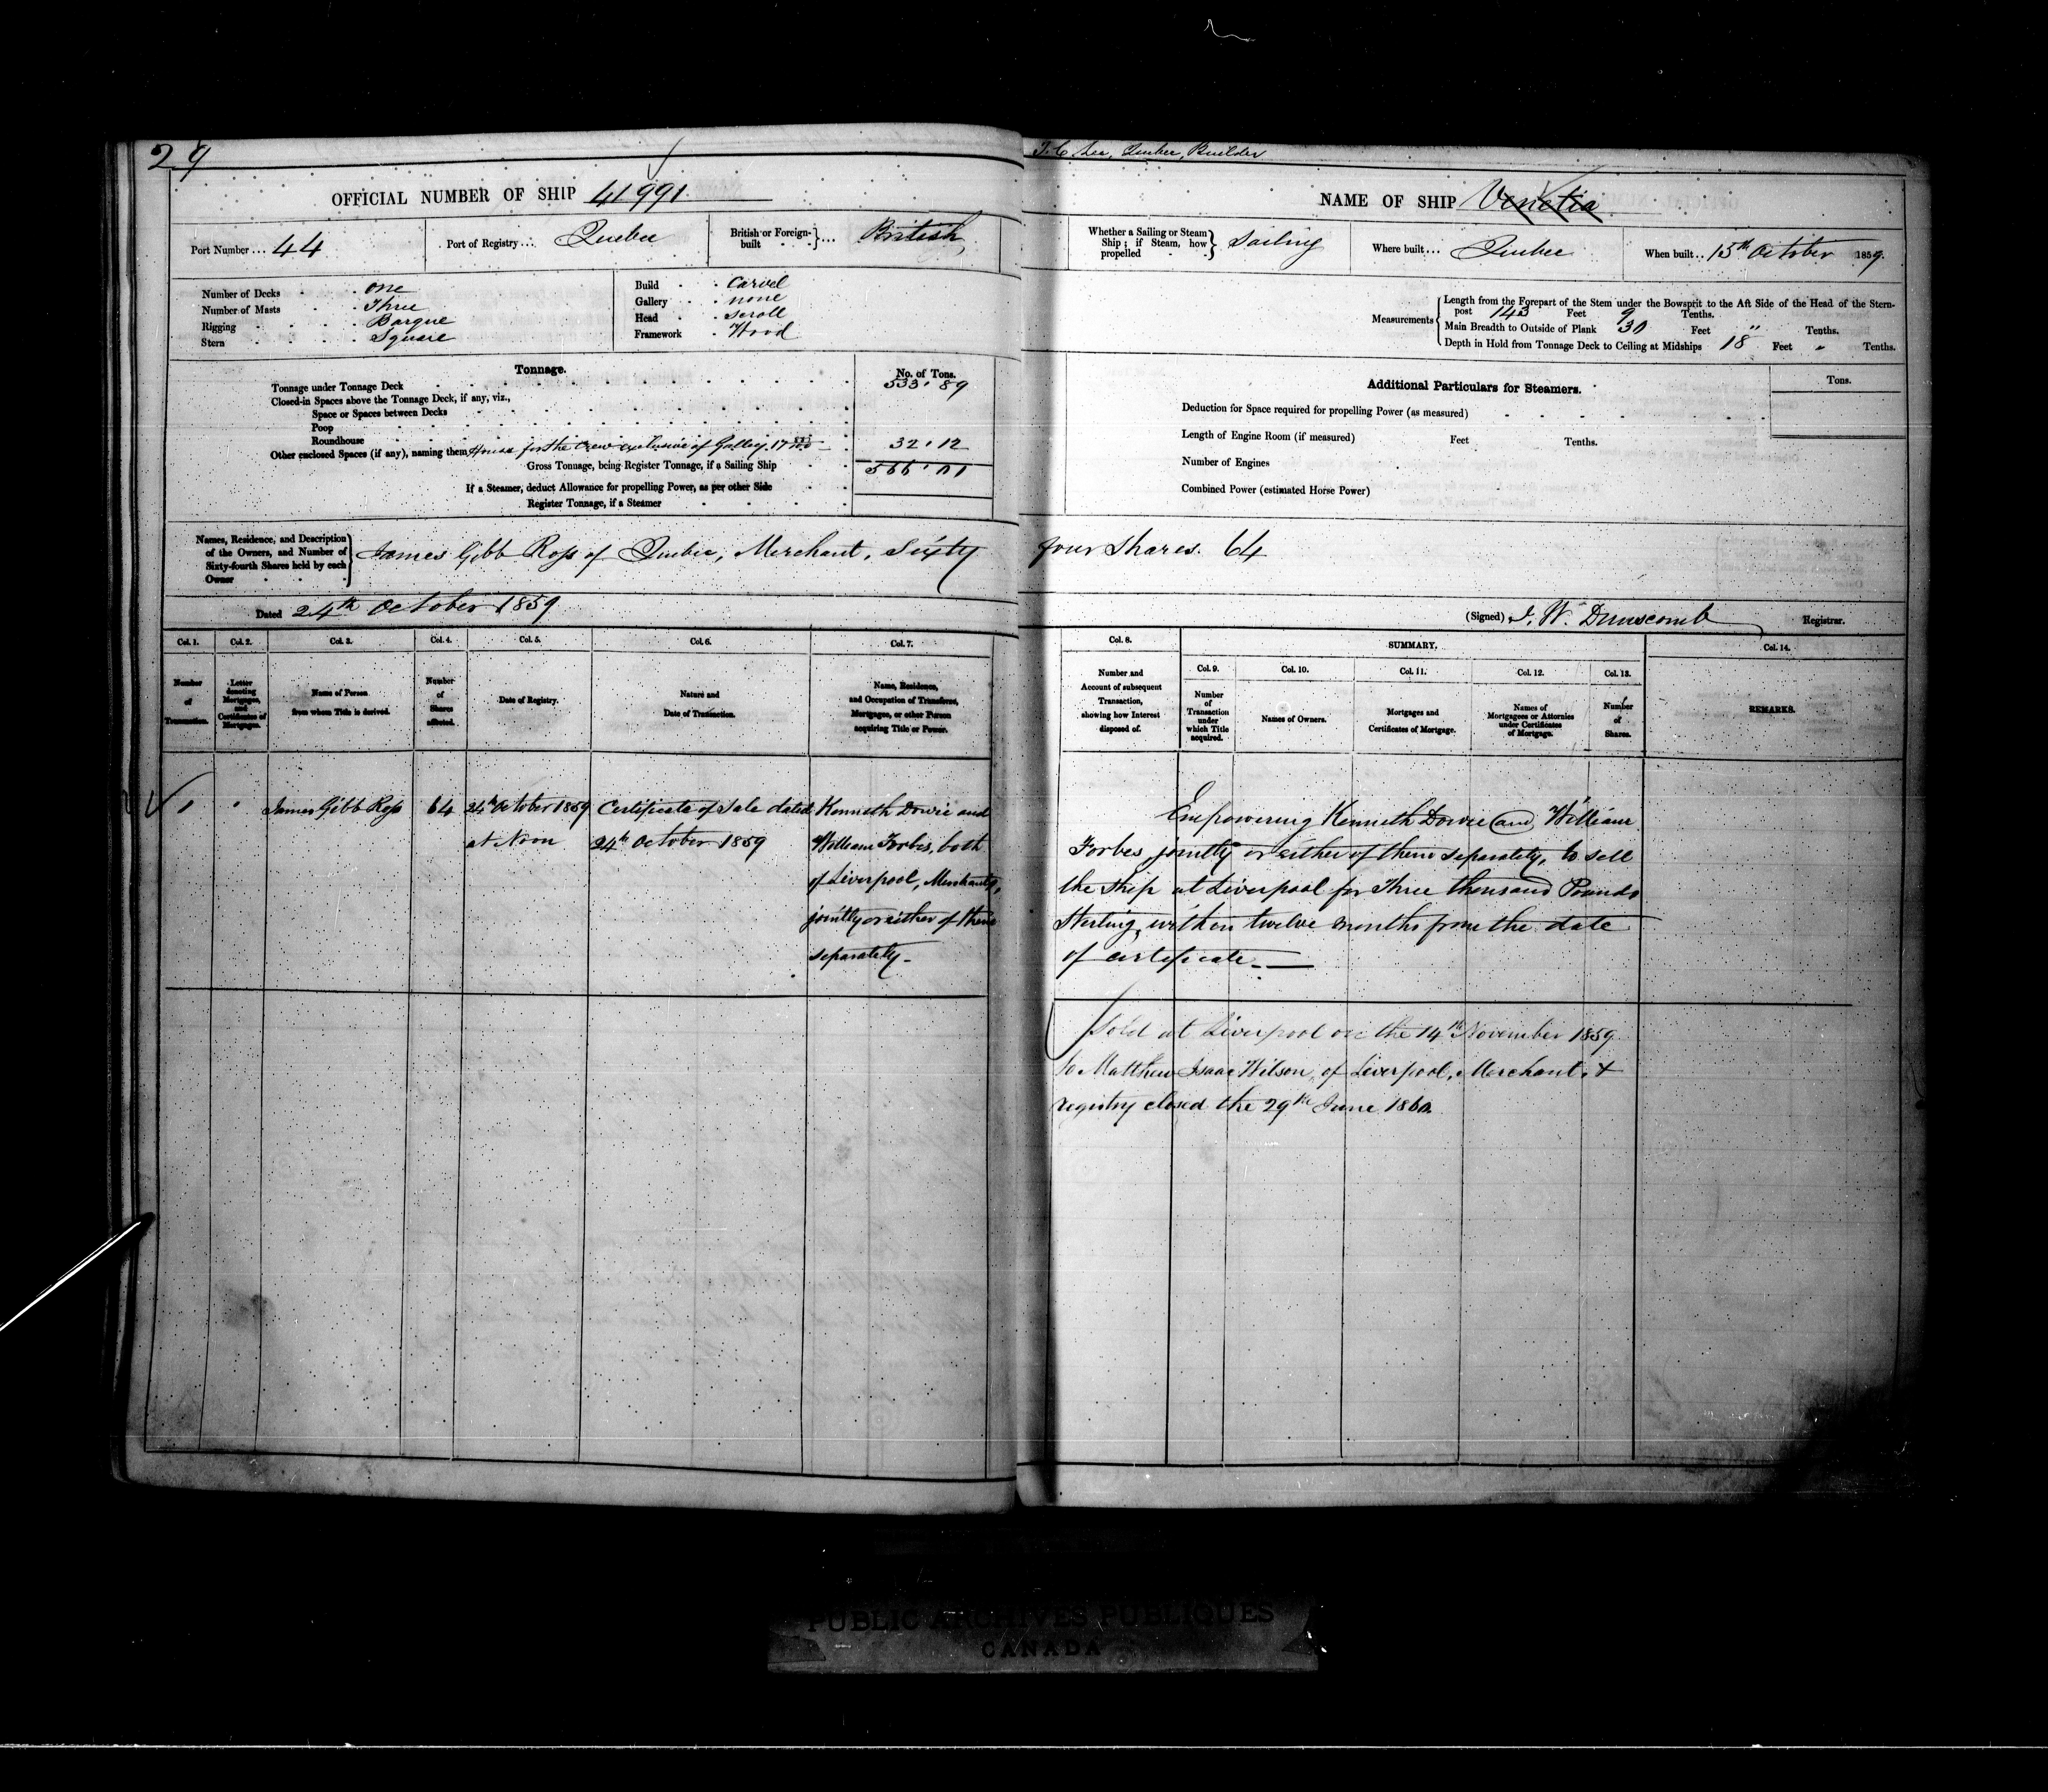 29
OFFICIAL NUMBER OF SHIP 41991
Port Number ... 44
Port of Registry ... Quebec
British or Foreign-built ... British
Number of Decks one
Number of Masts Three
Rigging Barque
Stern Square
Build Carvel
Gallery none
Head Scroll
Framework Wood
Tonnage.
No. of Tons.
Tonnage under Tonnage Deck 533.89
Closed-in Spaces above the Tonnage Deck, if any, viz.,
Space or Spaces between Decks
Poop
Roundhouse
Other enclosed Spaces (if any), naming them House for the crew exclusive of Galley 17 32.12
Gross Tonnage, being Register Tonnage, if a Sailing Ship 566.01
If a Steamer, deduct Allowance for propelling Power, as per other Side
Register Tonnage, if a Steamer
Names, Residence, and Description
of the Owners, and Number of
Sixty-fourth Shares held by each
Owner
James Gibb Ross of Quebec, Merchant, Sixty
Dated 24th October 1859
Col. 1. Col. 2. Col. 3. Col. 4. Col. 5. Col. 6. Col. 7.
Number of Transaction.
Letter denoting Mortgages, and Certificates of Mortgages.
Name of Person from whom Title is derived.
Number of Shares affected.
Date of Registry.
Nature and Date of Transaction.
Name, Residence, and Occupation of Transferee, Mortgagee, or other Person acquiring Title or Power.
1 " James Gibb Ross 64 24th October 1859 Certificate of Sale dated Kenneth Dowie and
at Noon 24th October 1859 William Forbes, both
of Liverpool, Merchants,
jointly or either of them
separately
J.C Lee, Quebec, Builder
NAME OF SHIP Venetia
Whether a Sailing or Steam Ship; if Steam, how propelled Sailing
Where built ... Quebec
When built .. 15th October 1859.
Measurements
Length from the Forepart of the Stem under the Bowsprit to the Aft Side of the Head of the Stern-
post 143 Feet 9 Tenths.
Main Breadth to Outside of Plank 30 Feet " Tenths.
Depth in Hold from Tonnage Deck to Ceiling at Midships 18 Feet " Tenths.
Additional Particulars for Steamers.
Tons.
Deduction for Space required for propelling Power (as measured)
Length of Engine Room (if measured) Feet Tenths.
Number of Engines
Combined Power (estimated Horse Power)
four shares. 64
(Signed) J. W. Dunscomb Registrar.
Col. 8.
SUMMARY.
Col. 14.
Col. 9. Col. 10. Col. 11. Col. 12. Col. 13.
Number and Account of subsequent Transaction, showing how Interest disposed of.
Number of Transaction under which Title acquired.
Names of Owners.
Mortgages and Certificates of Mortgage.
Names of Mortgagees or Attornies under Certificates of Mortgage.
Number of Shares.
REMARKS.
Empowering Kenneth Dowie and William
Forbes jointly or either of them separately, to sell
the ship at Liverpool for Three thousand Pounds
Sterling, within twelve months from the date
of certificate
Sold at Liverpool on the 14th November 1859
to Matthew Isaac Wilson, of Liverpool, Merchant, &
registry closed the 29th June 1860.
PUBLIC ARCHIVES PUBLIQUES
CANADA